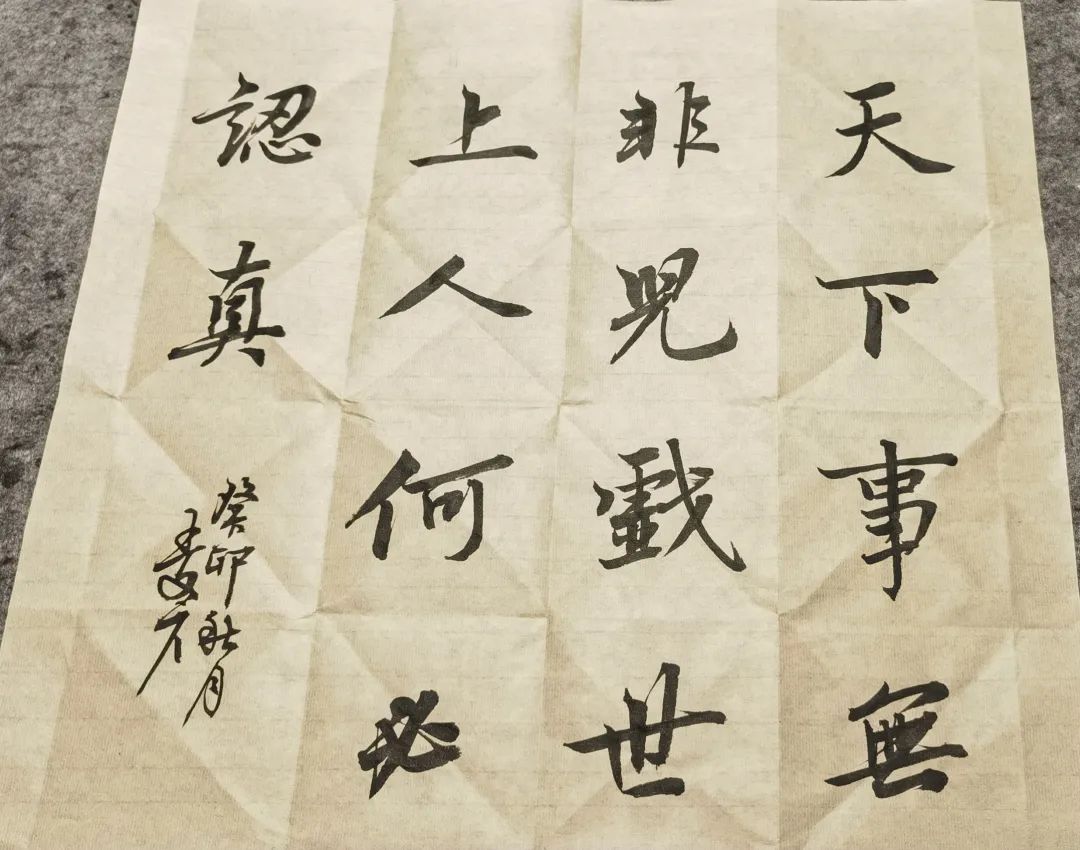 天下事無
非兒戲世
上人何必
認真
癸卯秋月